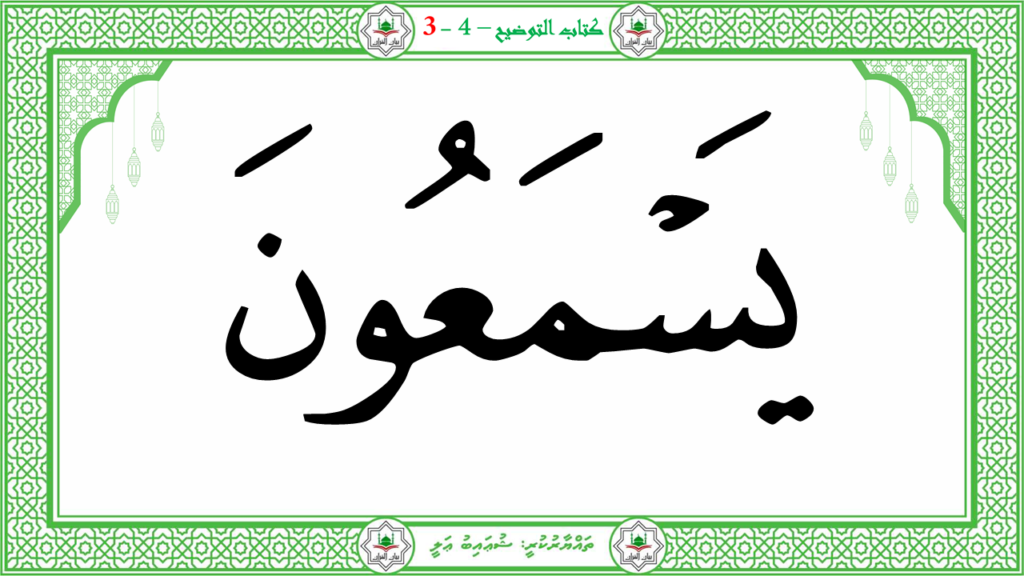 كتاب التوضيح – 4 - 3
يَسْمَعُونَ
ތައްޔާރުކުރީ: ޝުޢައިބު ޢަލީ